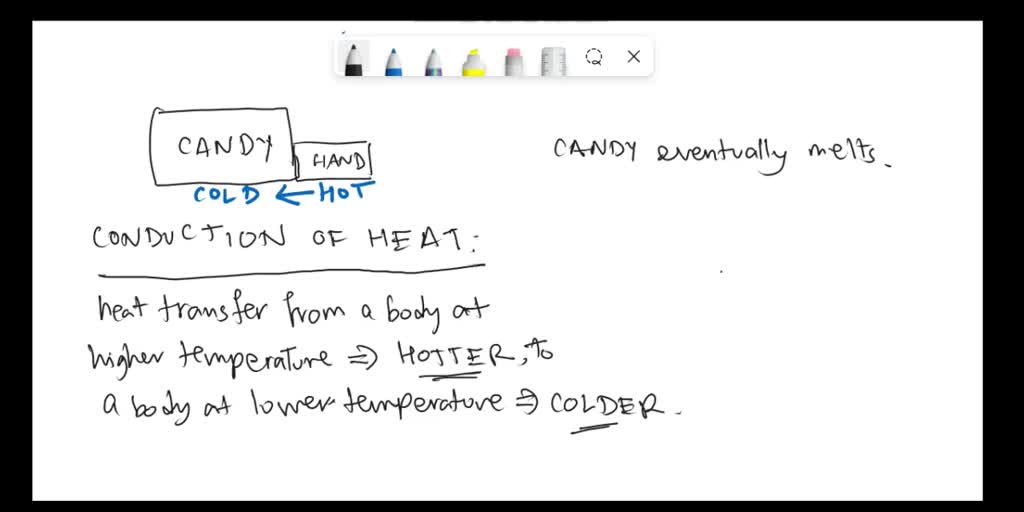 CANDY
HAND
CANDY eventually melts.
COLD ← HOT
CONDUCTION OF HEAT:
heat transfer from a body at
higher temperature ⇒ HOTTER, to
a body at lower temperature ⇒ COLDER.